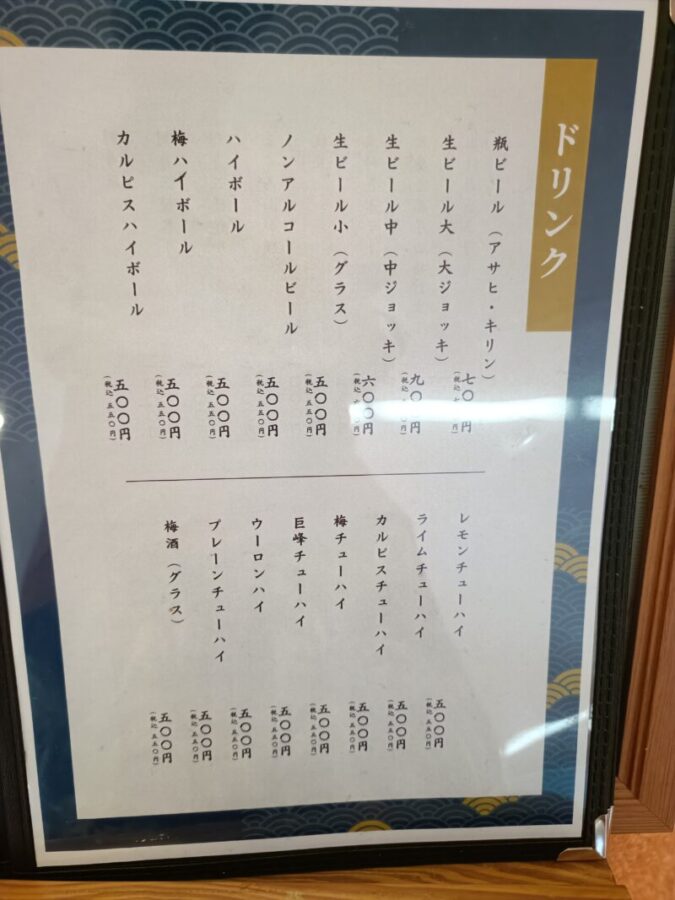 ドリンク
瓶ビール（アサヒ・キリン）
七〇〇円
（税込
生ビール大（大ジョッキ）
九〇〇円
（税込
生ビール中（中ジョッキ）
六〇〇円
（税込
生ビール小（グラス）
五〇〇円
（税込 五五〇円）
ノンアルコールビール
五〇〇円
（税込 五五〇円）
ハイボール
五〇〇円
（税込 五五〇円）
梅ハイボール
五〇〇円
（税込 五五〇円）
カルピスハイボール
五〇〇円
（税込 五五〇円）
レモンチューハイ
五〇〇円
（税込 五五〇円）
ライムチューハイ
五〇〇円
（税込 五五〇円）
カルピスチューハイ
五〇〇円
（税込 五五〇円）
梅チューハイ
五〇〇円
（税込 五五〇円）
巨峰チューハイ
五〇〇円
（税込 五五〇円）
ウーロンハイ
五〇〇円
（税込 五五〇円）
プレーンチューハイ
五〇〇円
（税込 五五〇円）
梅酒（グラス）
五〇〇円
（税込 五五〇円）